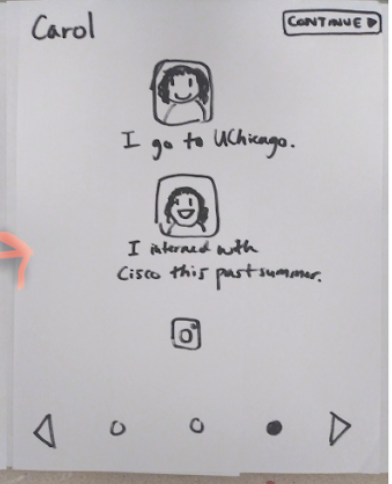 Carol
CONTINUE
I go to UChicago.
I interned with
Cisco this past summer.